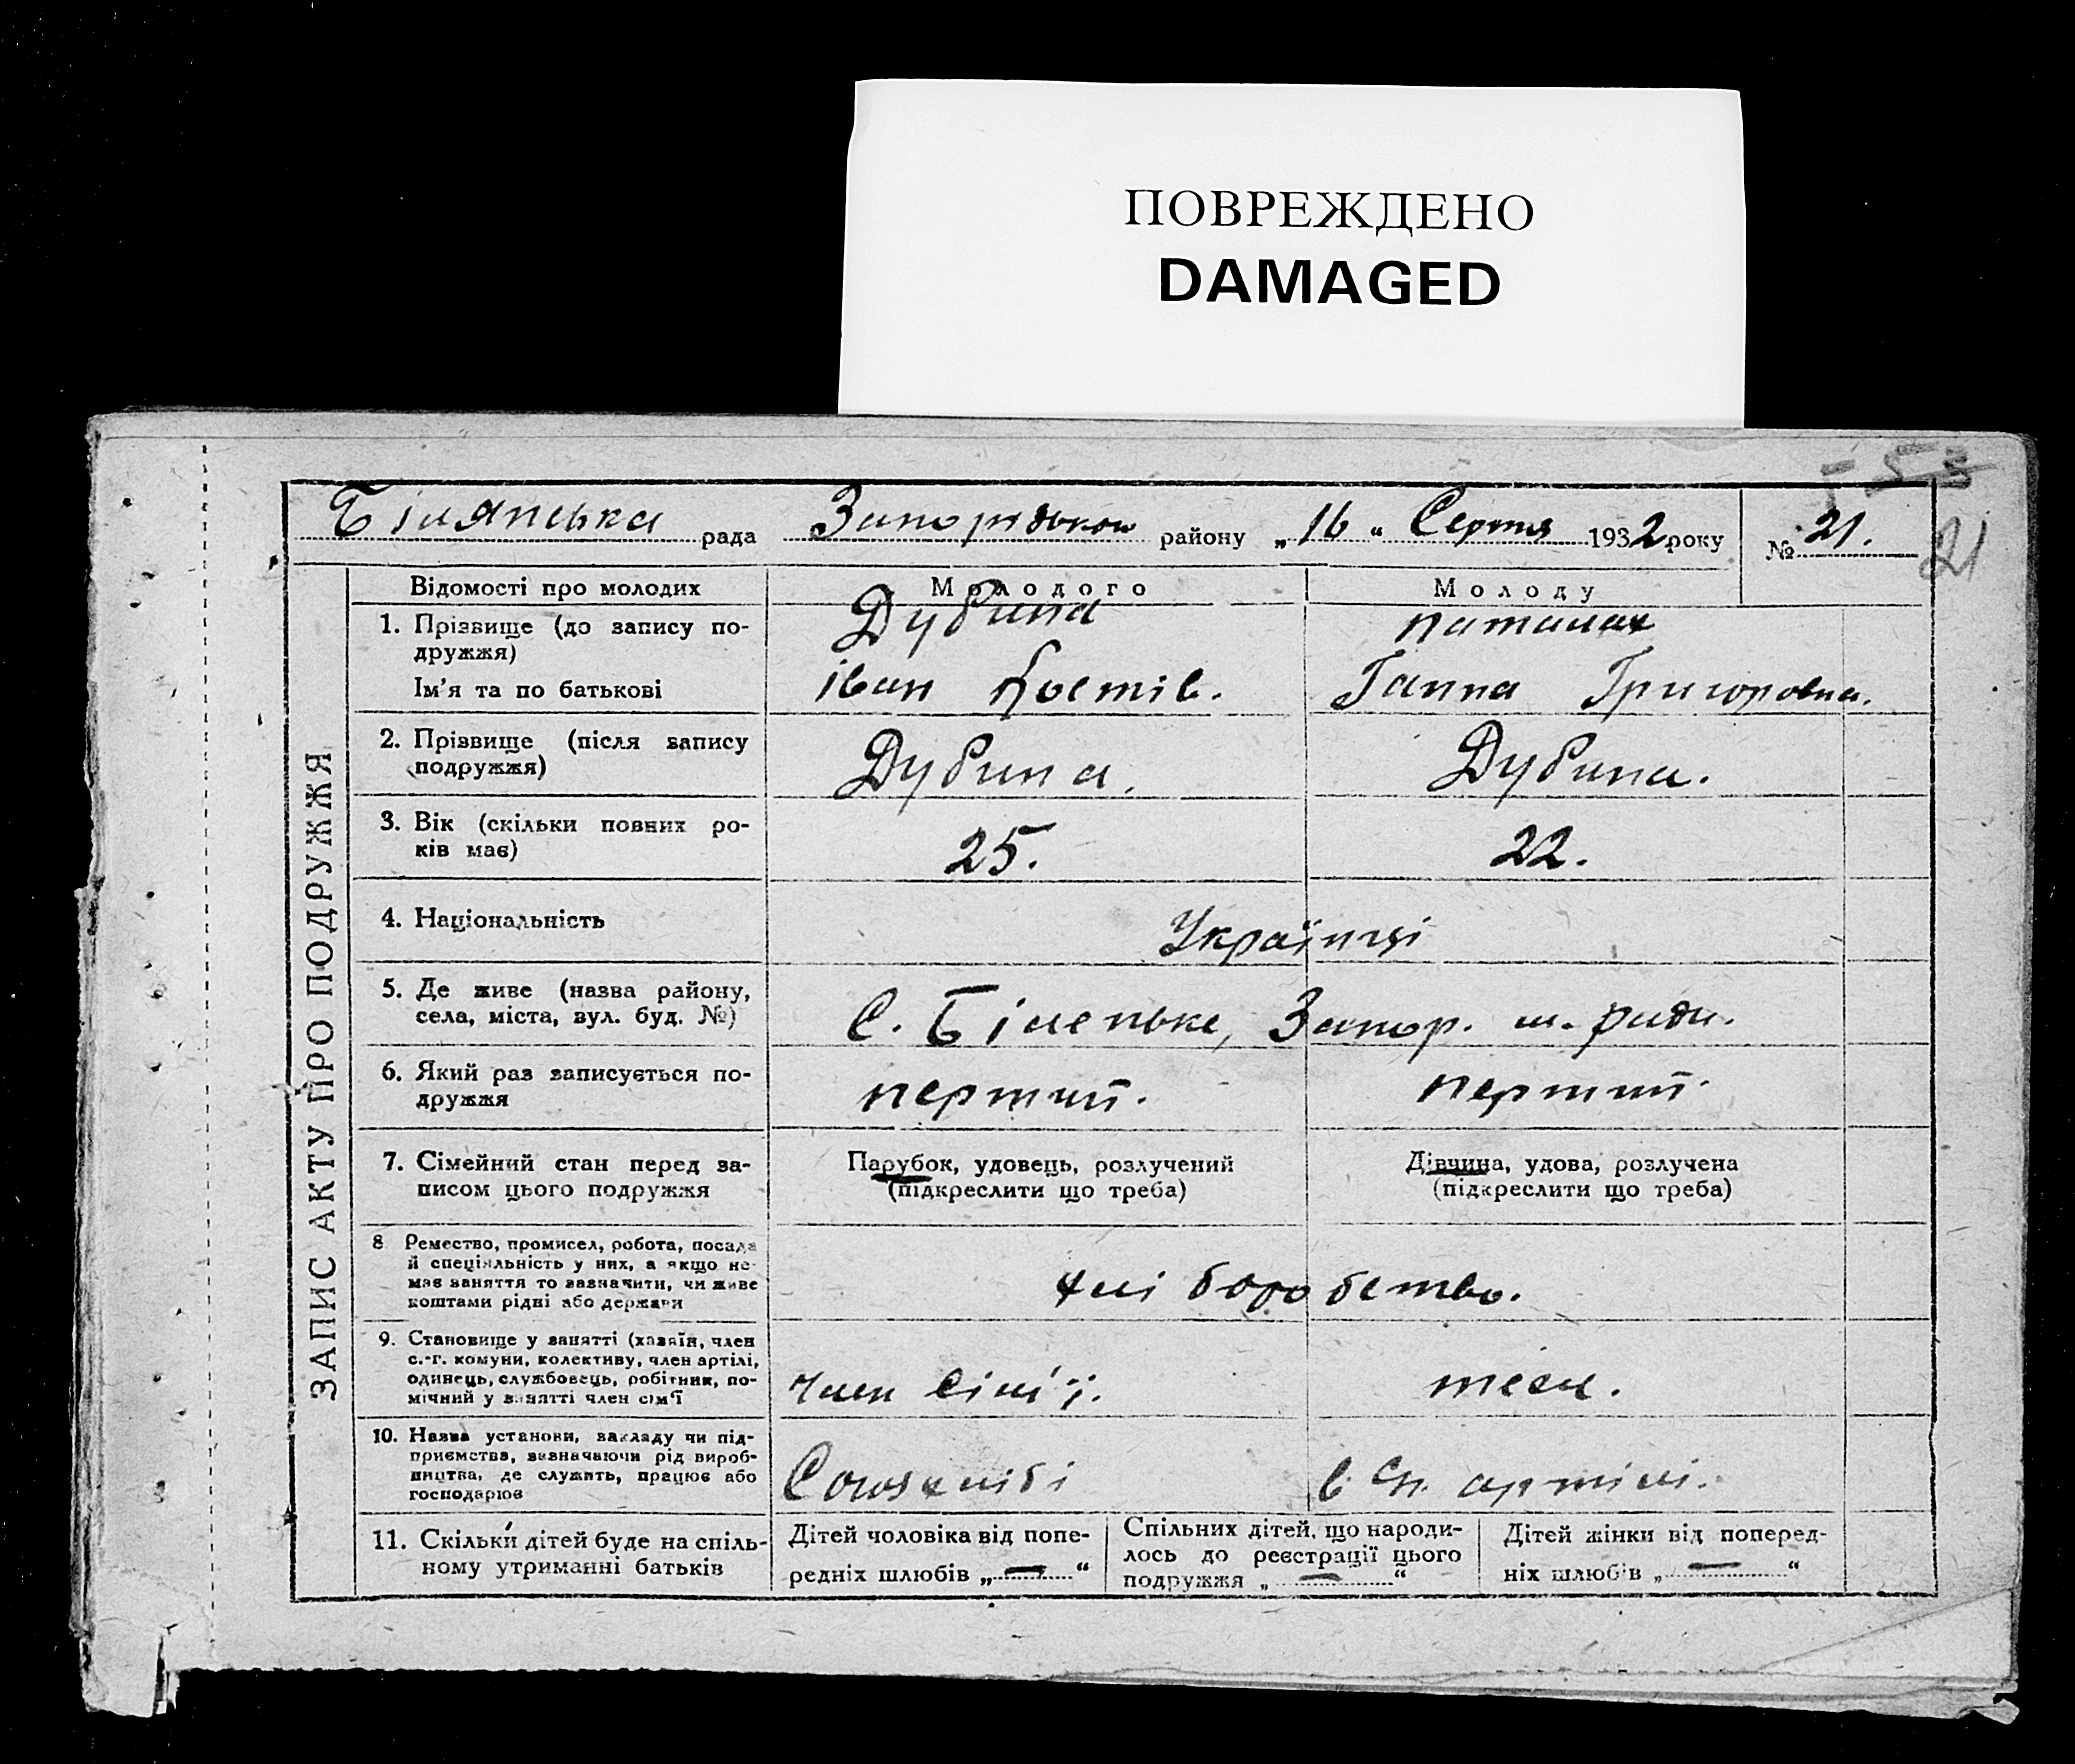 ПОВРЕЖДЕНО
DAMAGED
553
Білянська рада Запорізькою району „16“ Серпня 1932 року № 21.
21
ЗАПИС АКТУ ПРО ПОДРУЖЖЯ
Відомості про молодих Молодого Молоду
1. Прізвище (до запису по-
дружжя)
Дубина
Ім'я та по батькові
Іван Костів. Ганна Григоровна.
2. Прізвище (після запису
подружжя)
Дубина. Дубина.
3. Вік (скільки повних ро-
ків має)
25. 22.
4. Національність
Українці
5. Де живе (назва району,
села, міста, вул. буд. №)
С. Біленьке, Запор. м. ради.
6. Який раз записується по-
дружжя
перший. перший.
7. Сімейний стан перед за-
писом цього подружжя
Парубок, удовець, розлучений
(підкреслити що треба)
Дівчина, удова, розлучена
(підкреслити що треба)
8 Ремество, промисел, робота, посада
й спеціяльність у них, а якщо не
має заняття то зазначити, чи живе
коштами рідні або держави
хліборобство.
9. Становище у занятті (хазяїн, член
с.-г. комуни, колективу, член артілі,
одинець, службовець, робітник, по-
мічний у занятті член сім'ї
член сім'ї. теж.
10. Назва установи, закладу чи під-
приємства, зазначаючи рід вироб-
ництва, де служить, працює або
господарює
в с.г. артілі.
11. Скільки дітей буде на спіль-
ному утриманні батьків
Дітей чоловіка від попе-
редніх шлюбів „—“
Спільних дітей, що народи-
лось до реєстрації цього
подружжя „—“
Дітей жінки від поперед-
ніх шлюбів „—“